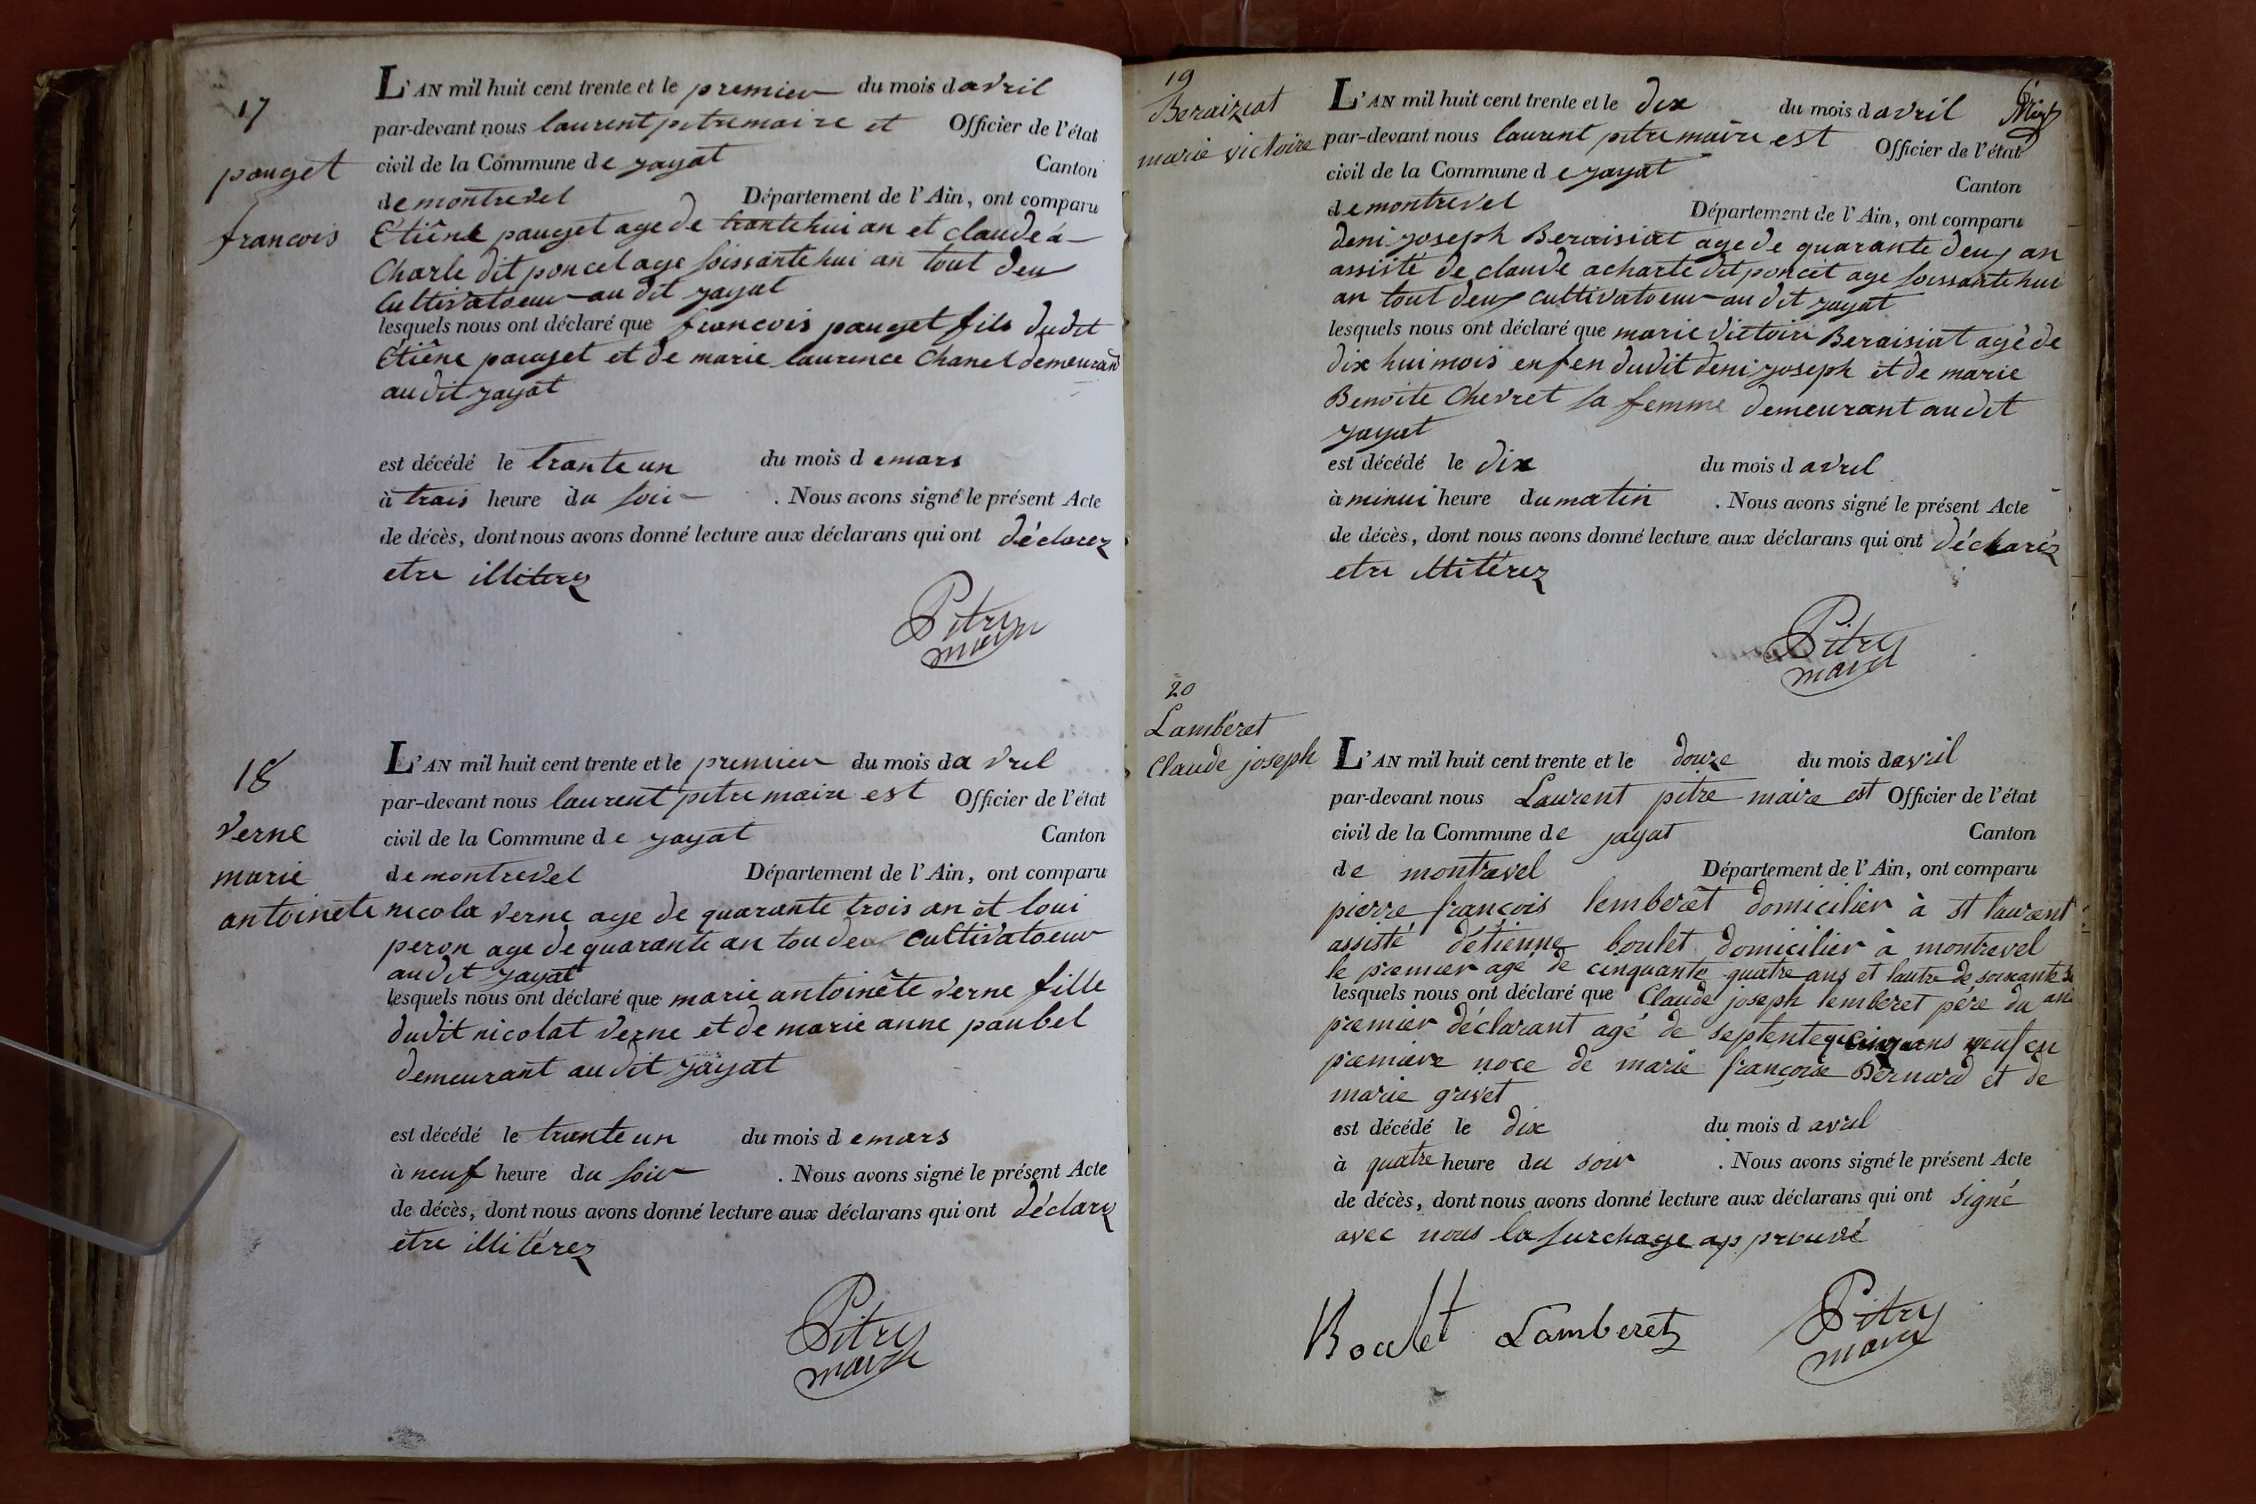 17
pouget
francois
L'AN mil huit cent trente et le premier du mois d avril
par-devant nous laurent pitre maire et Officier de l'état
civil de la Commune de jayat Canton
de montrevel Département de l'Ain, ont comparu
Etiêne pouget age de trante hui an et claude a
Charle dit poncet age soissante hui an tout deu
Cultivatoeur au dit jayat
lesquels nous ont déclaré que francois pouget fils dudit
Etiêne pouget et de marie laurence Chanel demeurand
au dit jayat
est décédé le trante un du mois d emars
à trais heure du soir . Nous avons signé le présent Acte
de décès, dont nous avons donné lecture aux déclarans qui ont déclarez
etre illiterez
Pitre
maire
18
verne
marie
antoinete
L'AN mil huit cent trente et le premier du mois d avril
par-devant nous laurent pitre maire est Officier de l'état
civil de la Commune de jayat Canton
de montrevel Département de l'Ain, ont comparu
nicola verne age de quarante trois an et loui
peron age de quarante an tou deu cultivatoeur
audit jayat
lesquels nous ont déclaré que marie antoinête verne fille
dudit nicolat verne et de marie anne paubel
demeurant au dit jayat
est décédé le trante un du mois d emars
à neuf heure du soir . Nous avons signé le présent Acte
de décès, dont nous avons donné lecture aux déclarans qui ont déclarez
etre illitérez
Pitre
maire
19
Beraiziat
marie victoire
L'AN mil huit cent trente et le dix du mois d avril
par-devant nous laurent pitre maire est Officier de l'état
civil de la Commune d e jayat Canton
de montrevel Département de l'Ain, ont comparu
deni joseph Beraisiat age de quarante deux an
assisté de claude acharle dit poncet age soissante hui
an tout deux cultivatoeur au dit jayat
lesquels nous ont déclaré que marie victoire Beraisiat agé de
dix hui mois enfen dudit deni joseph et de marie
Benoite Chevret sa femme demeurant au dit
jayat
est décédé le dix du mois d avril
à minui heure du matin . Nous avons signé le présent Acte
de décès, dont nous avons donné lecture aux déclarans qui ont déclaréz
etre illitérez
Pitre
maire
20
Lambéret
Claude joseph
L'AN mil huit cent trente et le douze du mois d avril
par-devant nous Laurent pitre maire est Officier de l'état
civil de la Commune de jayat Canton
de montravel Département de l'Ain, ont comparu
pierre françois lemberet domicilier à st laurent
assisté détienne boulet domicilier à montrevel
le premier agé de cinquante quatre ans et lautre de soixante
lesquels nous ont déclaré que Claude joseph lemberet pére du
premier déclarant agé de septente cinq ans veuf en
premiere noce de marie françoise Bernard et de
marie grivet
est décédé le dix du mois d avril
à quatre heure du soir . Nous avons signé le présent Acte
de décès, dont nous avons donné lecture aux déclarans qui ont signé
avec nous la surchage approuvé
Boulet Lamberet Pitre
maire